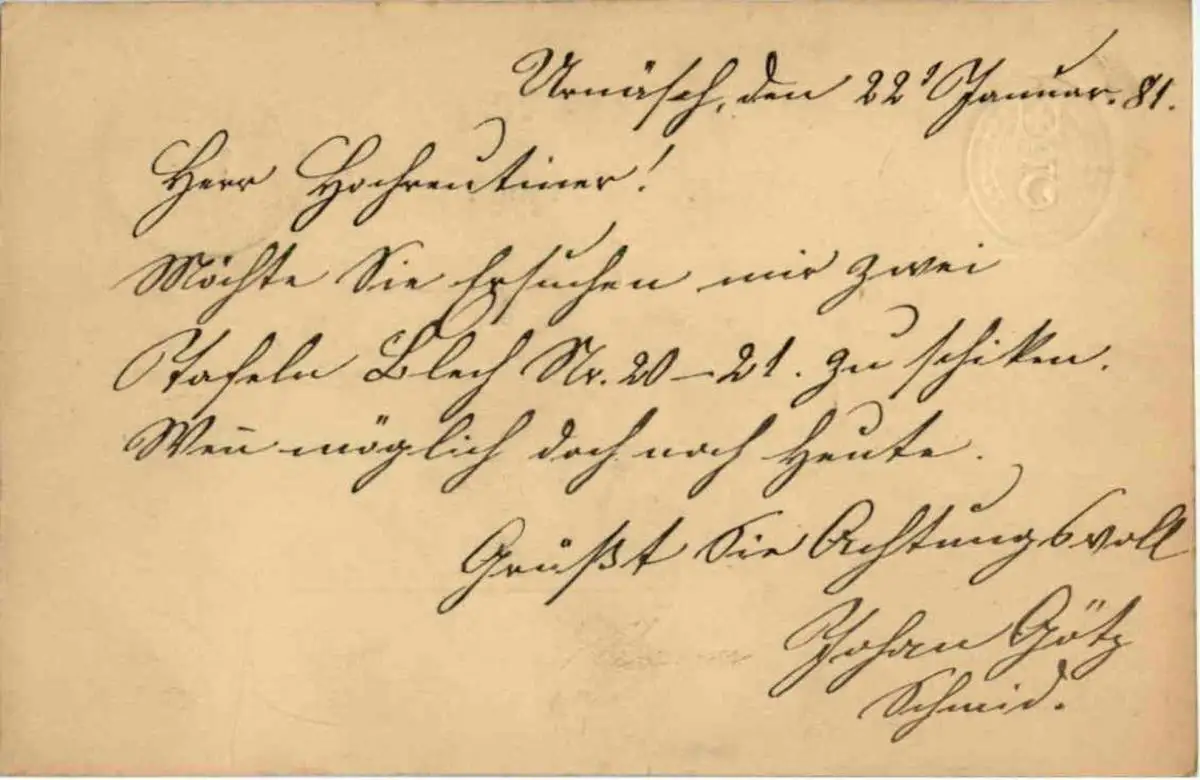 Urnäsch, den 22' Januar. 81.
Herr Hochreutiner!
Möchte Sie Ersuchen mir zwei
Tafeln Blech Nr. 20 – 21. zu schiken.
Wen̄ möglich doch noch Heute.
Grüßt Sie Achtungsvoll
Johan Götz
Schmid.